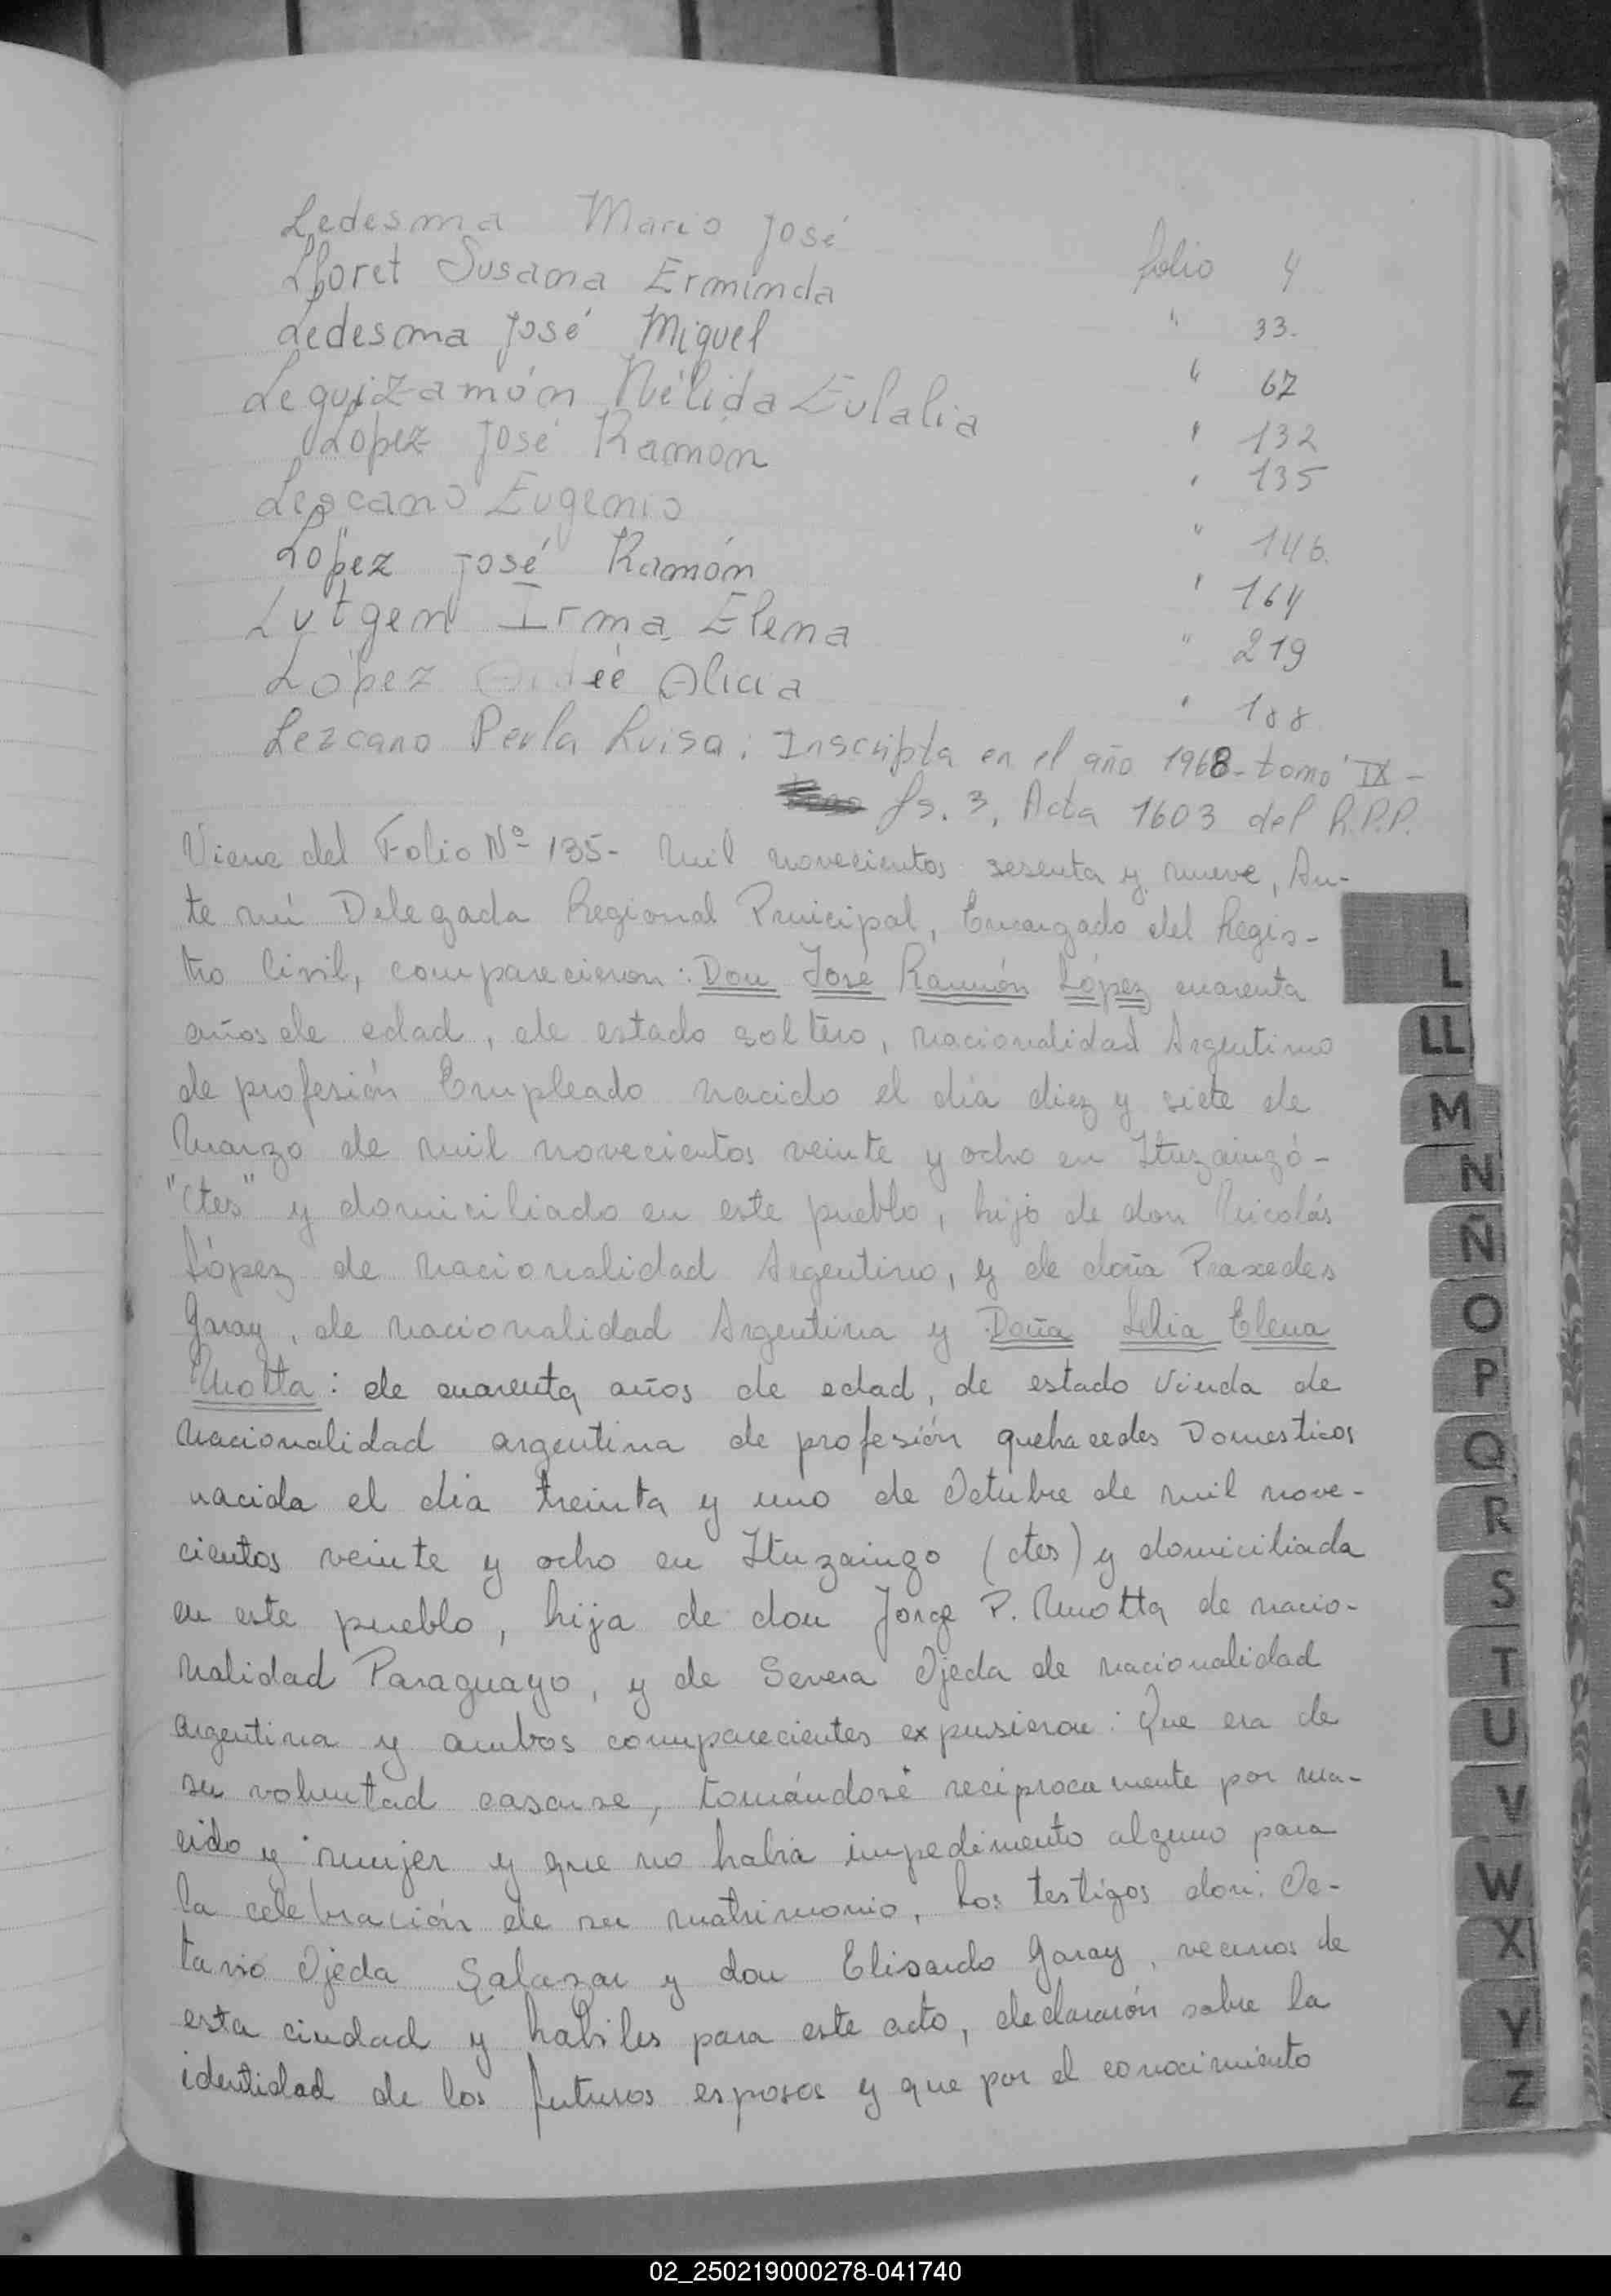 Ledesma Mario José folio 4
Lloret Susana Erminda " 33.
Ledesma José Miguel " 67
Leguizamón Nélida Eulalia " 132
López José Ramón " 135
Lezcano Eugenio " 146.
López José Ramón " 164
Lutgen Irma Elena " 219
López Alicia " 188
Lezcano Perla Luisa: Inscripta en el año 1968 - tomo IX -
fs. 3, Acta 1603 del R.P.P.
Viene del Folio Nº 135- mil novecientos sesenta y nueve, An-
te mí Delegada Regional Principal, Encargado del Regis-
tro Civil, comparecieron: Don José Ramón López cuarenta
años de edad, de estado soltero, nacionalidad Argentino
de profesión Empleado nacido el día diez y siete de
Marzo de mil novecientos veinte y ocho en Ituzaingó-
"Ctes" y domiciliado en este pueblo, hijo de don Nicolás
López de nacionalidad Argentino, y de doña Praxedes
Garay, de nacionalidad Argentina y Doña Lelia Elena
Motta: de cuarenta años de edad, de estado Viuda de
nacionalidad argentina de profesión quehacedes Domesticos
nacida el dia treinta y uno de Octubre de mil nove-
cientos veinte y ocho en Ituzaingo (ctes) y domiciliada
en este pueblo, hija de don Jorge P. Motta de nacio-
nalidad Paraguayo, y de Severa Ojeda de nacionalidad
argentina y ambos comparecientes expusieron: Que era de
su voluntad casarse, tomándose reciprocamente por ma-
rido y mujer y que no habia impedimento alguno para
la celebración de su matrimonio, Los testigos don: Oc-
tavio Ojeda Salazar y don Elisardo Garay, vecinos de
esta ciudad y habiles para este acto, declararón sobre la
identidad de los futuros esposos y que por el conocimiento
L
LL
M
N
Ñ
O
P
Q
R
S
T
U
V
W
X
Y
Z
02_250219000278-041740